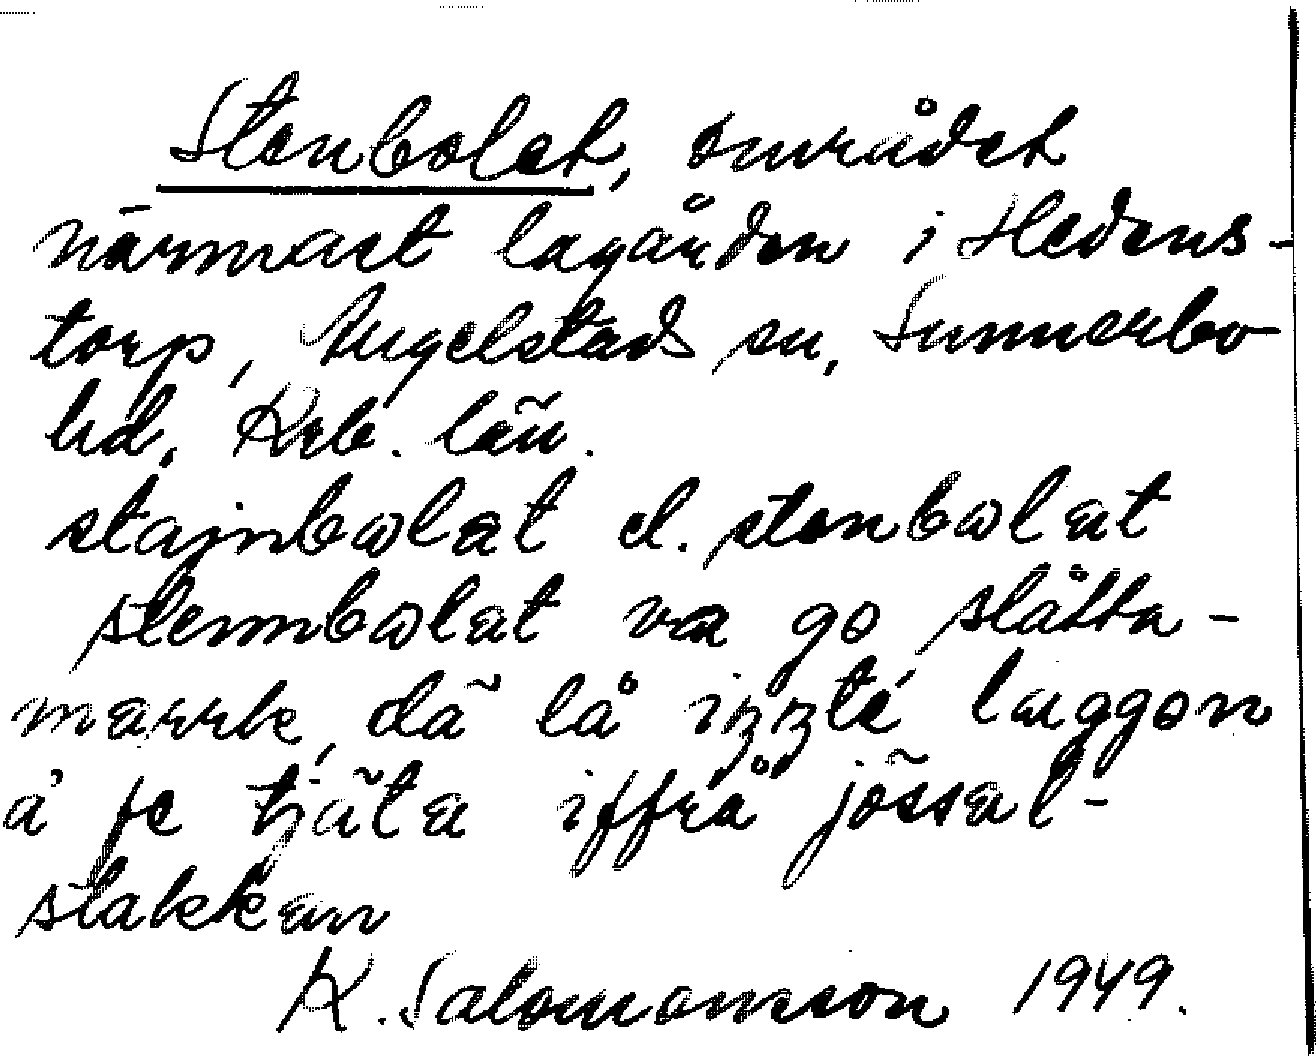 Stenbolet, området
närmast lagården i Hedens-
torp, Angelstads sn, Sunnerbo
hd, Krb. län.
stajnbωlæt el. stenbωlæt
stennbωlæt va go slåtta-
marrk, dä lå izzte læggon
å fe tjäta iffrå jössal-
stakkan
K. Salomonsson 1949.